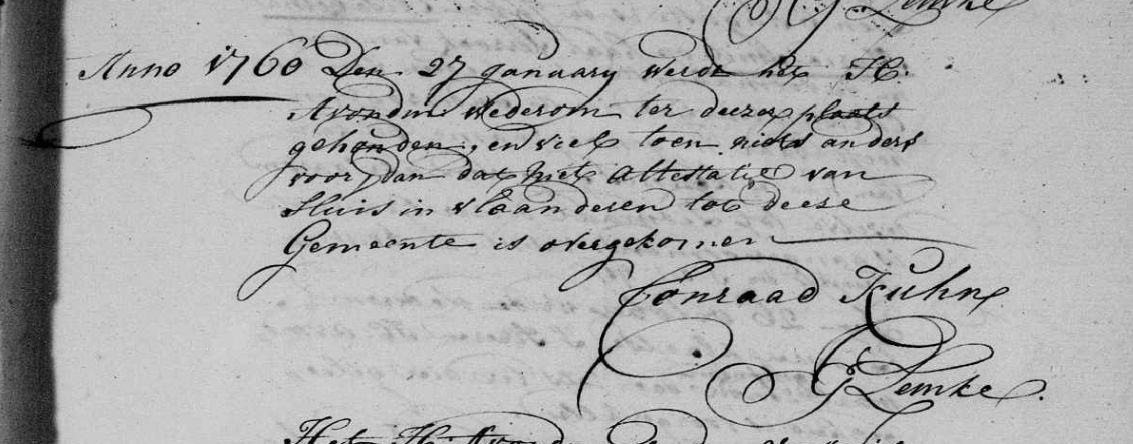 G Lemke
Anno 1760 Den 27 january werdt het H:
Avondm. wederom ter deezer plaats
gehouden, en viel toen niets anders
voor, dan dat met Attestatie van
Sluis in vlaanderen tot deese
Gemeente is overgekomen
Conraad Kuhn
G Lemke.
Het H: Avondm